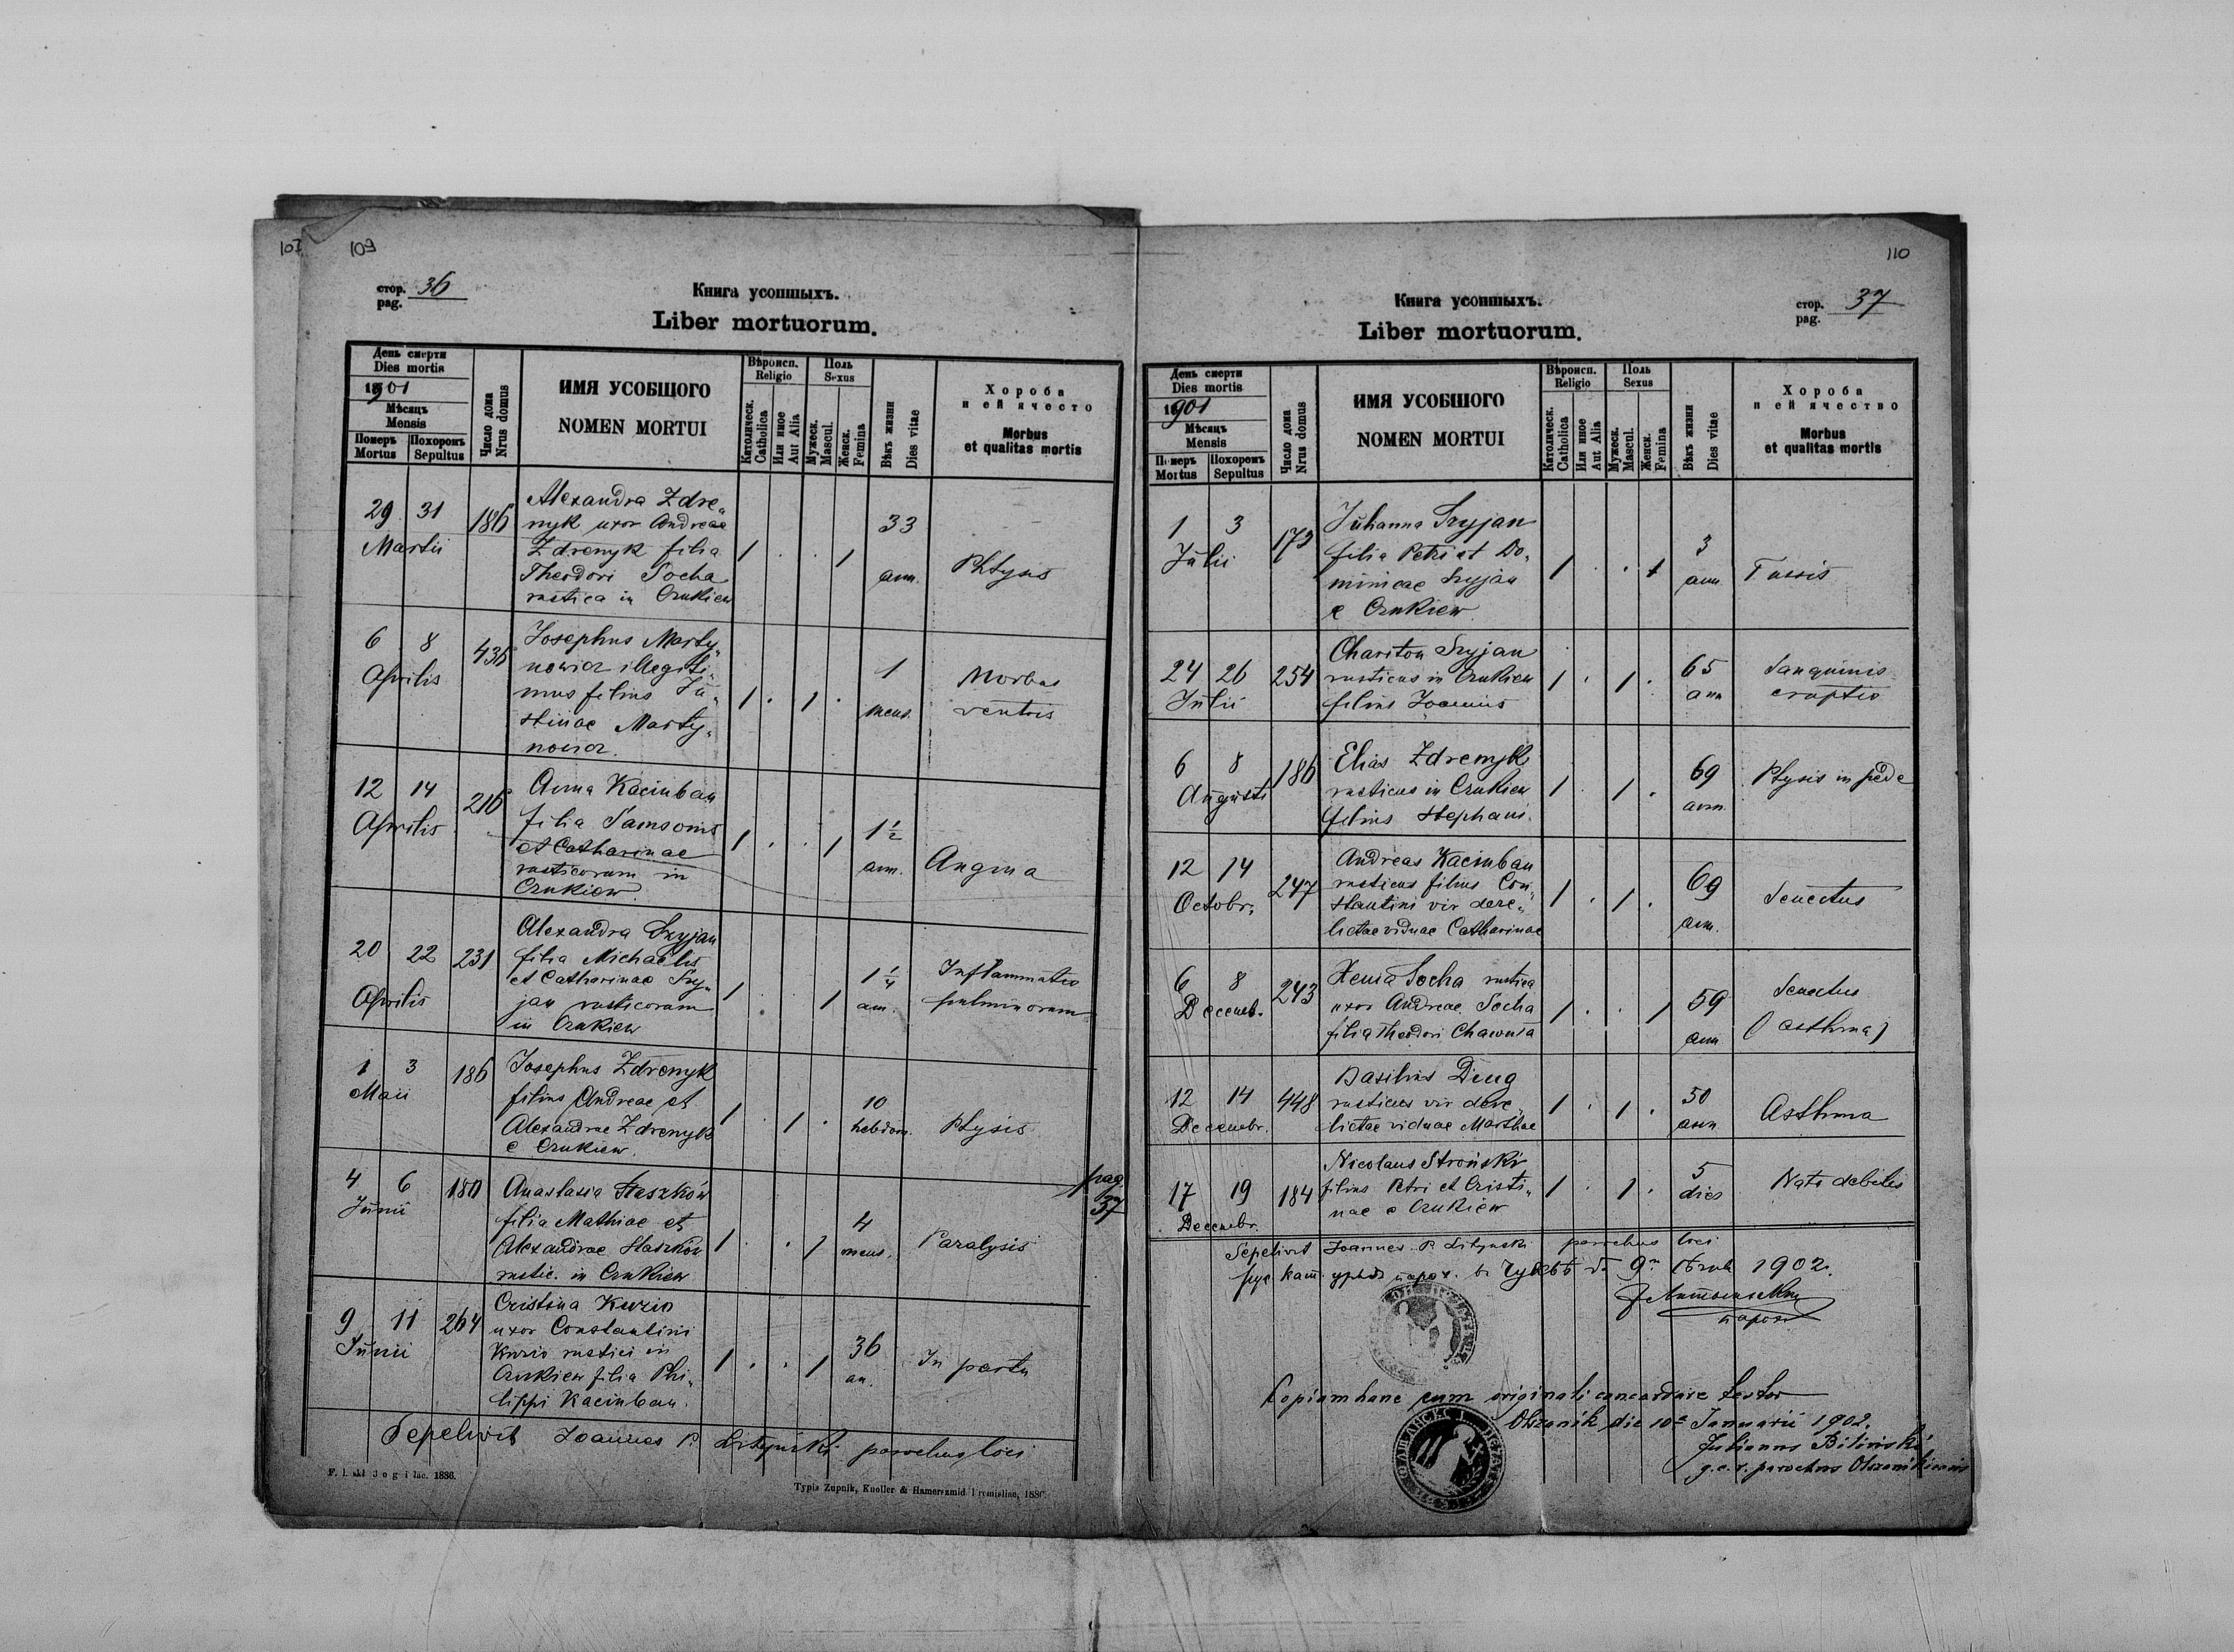 107
109
стор. 36
pag.
Книга усопшыхъ.
Liber mortuorum.
День смерти
Dies mortis
1901
Мѣсяцъ
Mensis
Померъ
Mortus
Похоронъ
Sepultus
Число дома
Nrus domus
ИМЯ УСОБШОГО
NOMEN MORTUI
Вѣроисп.
Religio
Католическ.
Catholica
Или иное
Aut Alia
Полъ
Sexus
Мужеск.
Mascul.
Женск.
Femina
Вѣкъ жизни
Dies vitae
Хороба
и ей ячесто
Morbus
et qualitas mortis
29 31
Martii
186
Alexandra Zdre„
nyk uxor Andreae
Zdrenyk filia
Theodori Socha
rustica in Czukiew
1 . . 1
33
ann.
Phtysis
6 8
Aprilis
436
Josephus Marty„
nowicz illegiti„
mus filius Ju„
stinae Marty„
nowicz.
1 . 1 .
1
mens.
Morbus
ventris
12 14
Aprilis
216
Anna Kacinban
filia Samsonis
et Catharinae
rusticorum in
Czukiew.
1 . . 1
1 1/2
ann.
Angina
20 22
Aprilis
231
Alexandra Szyjan
filia Michaelis
et Catharinae Szy„
jan rusticorum
in Czukiew
1 . . 1
1 1/4
an.
Inflammatio
pulminorum
1 3
Maii
186
Josephus Zdrenyk
filius Andreae et
Alexandrae Zdrenyk
e Czukiew.
1 . 1 .
10
hebdom.
Ptysis
4 6
Junii
180
Anastasia Staszków
filia Mathiae et
Alexandrae Staszków
rustic. in Czukiew
1 . . 1
4
mens.
Paralysis
pag.
37
9 11
Junii
264
Cristina Kurio
uxor Constantini
Kurio rustici in
Czukiew filia Phi„
lippi Kacinban.
1 . . 1
36
an.
In partu
Sepelivit Joannes P. Lityński parochus loci
Typis Zupnik, Knoller & Hamerszmid
110
Книга усопшыхъ.
Liber mortuorum.
стор. 37
pag.
День смерти
Dies mortis
1901
Мѣсяцъ
Mensis
Померъ
Mortus
Похоронъ
Sepultus
Число дома
Nrus domus
ИМЯ УСОБШОГО
NOMEN MORTUI
Вѣроисп.
Religio
Католическ.
Catholica
Или иное
Aut Alia
Полъ
Sexus
Мужеск.
Mascul.
Женск.
Femina
Вѣкъ жизни
Dies vitae
Хороба
и ей ячество
Morbus
et qualitas mortis
1 3
Julii
173
Juhanna Szyjan
filia Petri et Do„
minicae Szyjan
e Czukiew
1 . . 1
3
ann
Tussis
24 26
Julii
254
Chariton Szyjan
rusticus in Czukiew
filius Joannis
1 . 1 .
65
ann
Sanguinis
eruptio
6 8
Augusti
186
Elias Zdrenyk
rusticus in Czukiew
filius Stephani.
1 . 1 .
69
ann
Ptysis in pede
12 14
Octobr.
247
Andreas Kacinban
rusticus filius Con„
stantini vir dere„
lictae viduae Catharinae
1 . 1 .
69
ann.
Senectus
6 8
Decemb.
243
Xenia Socha rustica
uxor Andreae Socha
filia Theodori Chawula
1 . . 1
59
ann
Senectus
(asthma)
12 14
Decembr.
448
Basilius Dług
rusticus vir dere„
lictae viduae Marthae
1 . 1 .
50
ann
Asthma
17 19
Decembr.
184
Nicolaus Stroński
filius Petri et Cristi„
nae e Czukiew
1 . 1 .
5
dies
Nats debilis
Sepelivit Joannes P. Lityński parochus loci
1902.
Copiam hanc cum originali concordare testor
Olszanik die 10a Januarii 1902.
Julianus Biliński
g.c.r. parochus Olszanikiensis